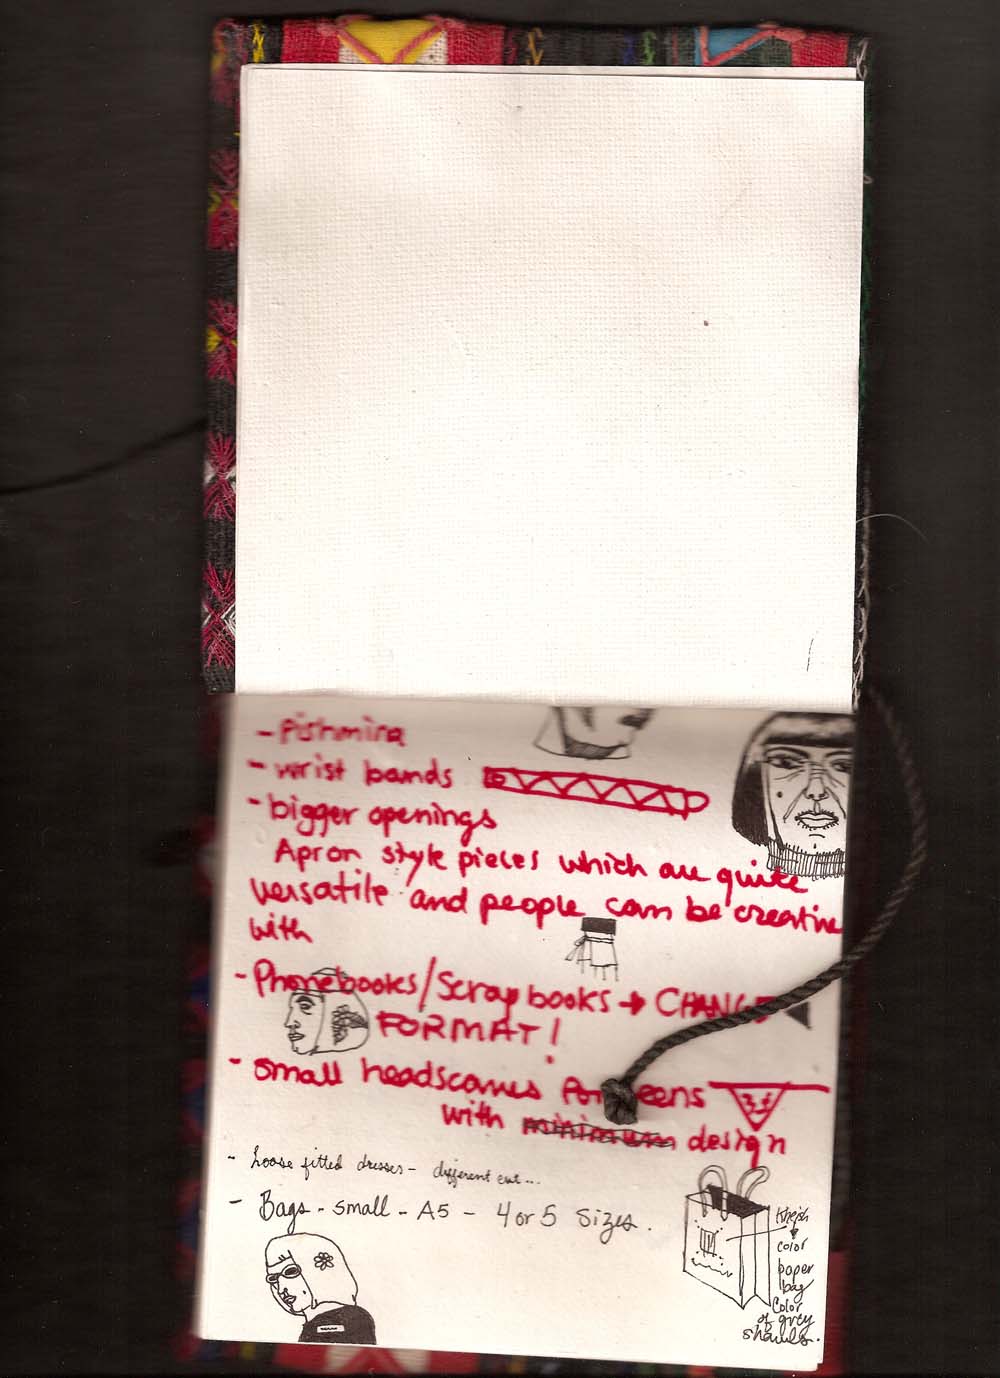 - Pishmina
- wrist bands
- bigger openings
Apron style pieces which are quite
versatile and people can be creative
with
- Phonebooks/Scrapbooks → CHANGE
FORMAT!
- small headscarves for teens
with minimum design
- Loose fitted dresses - different cut...
- Bags - small - A5 - 4 or 5 sizes.
color
paper
bag
Color
of grey
shawls.